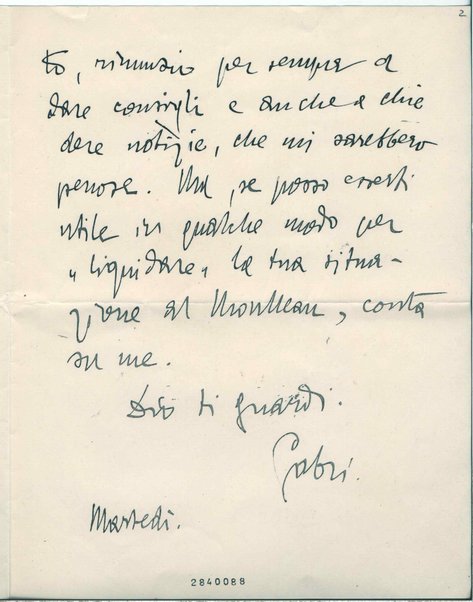 2
to, rinunzio per sempre a
dare consigli e anche a chie
dere notizie, che mi sarebbero
penose. Ma, se posso esserti
utile in qualche modo per
"liquidare" la tua situa-
zione al Moulleau, conta
su me.
Dio ti guardi.
Gabri.
Martedì.
2840088